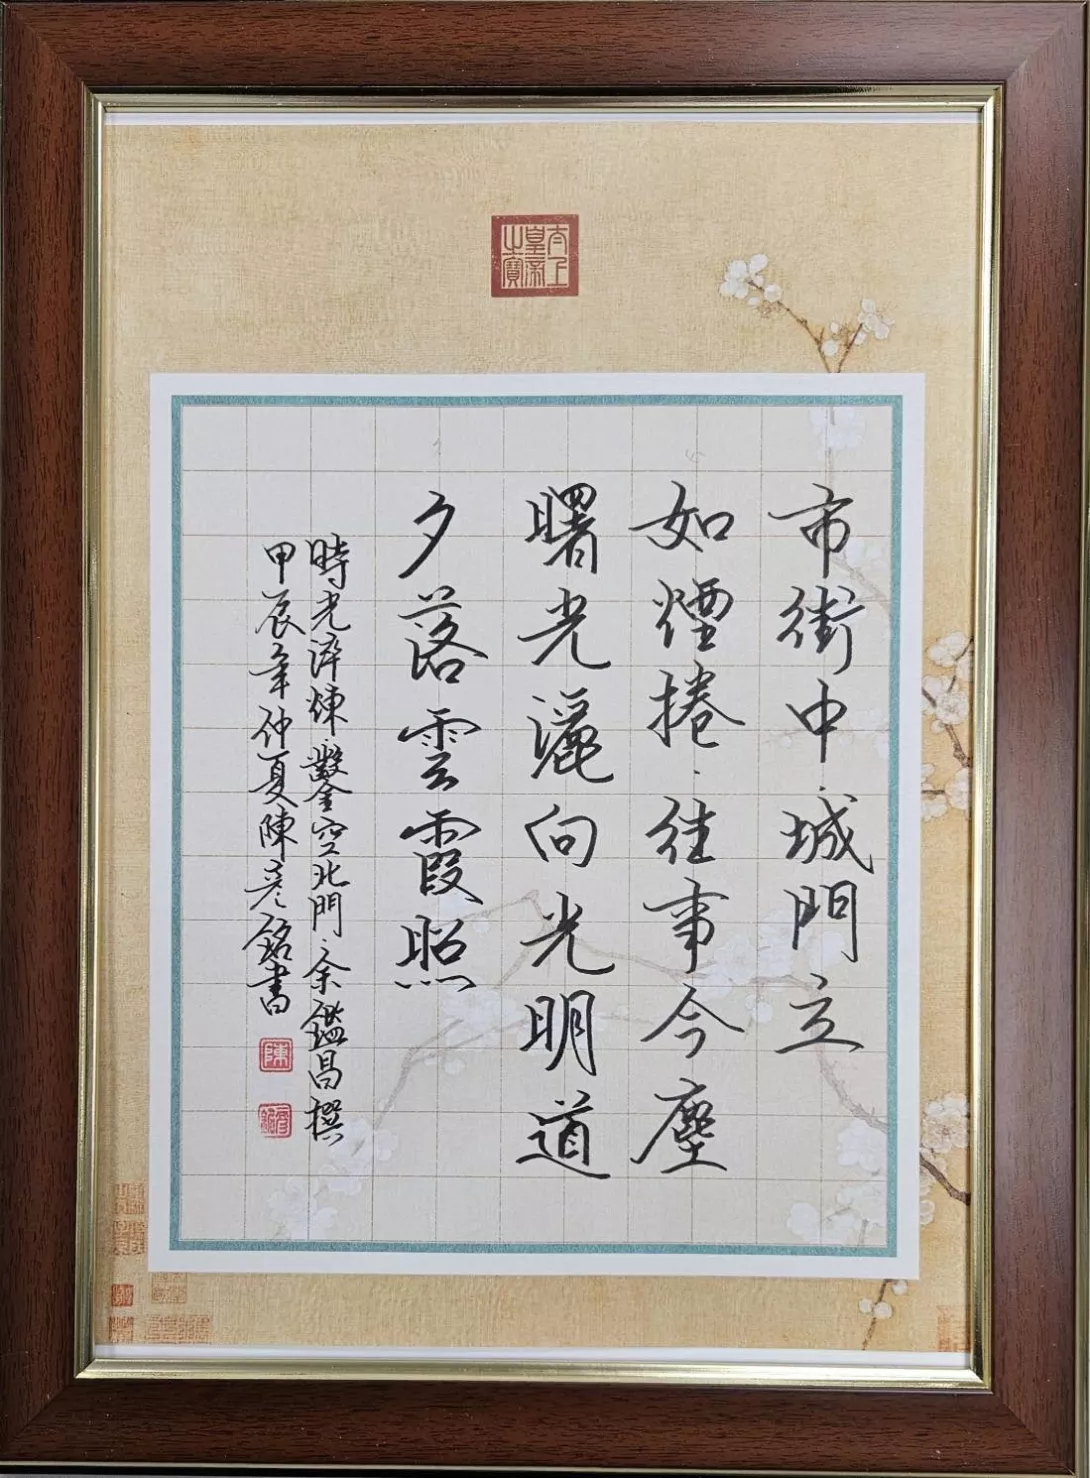 太上皇帝之寶
市街中城門立
如煙捲往事今塵
曙光灑向光明道
夕落雲霞照
時光淬煉鑿空北門余鑑昌撰
甲辰年仲夏陳彥銘書
陳
彥銘